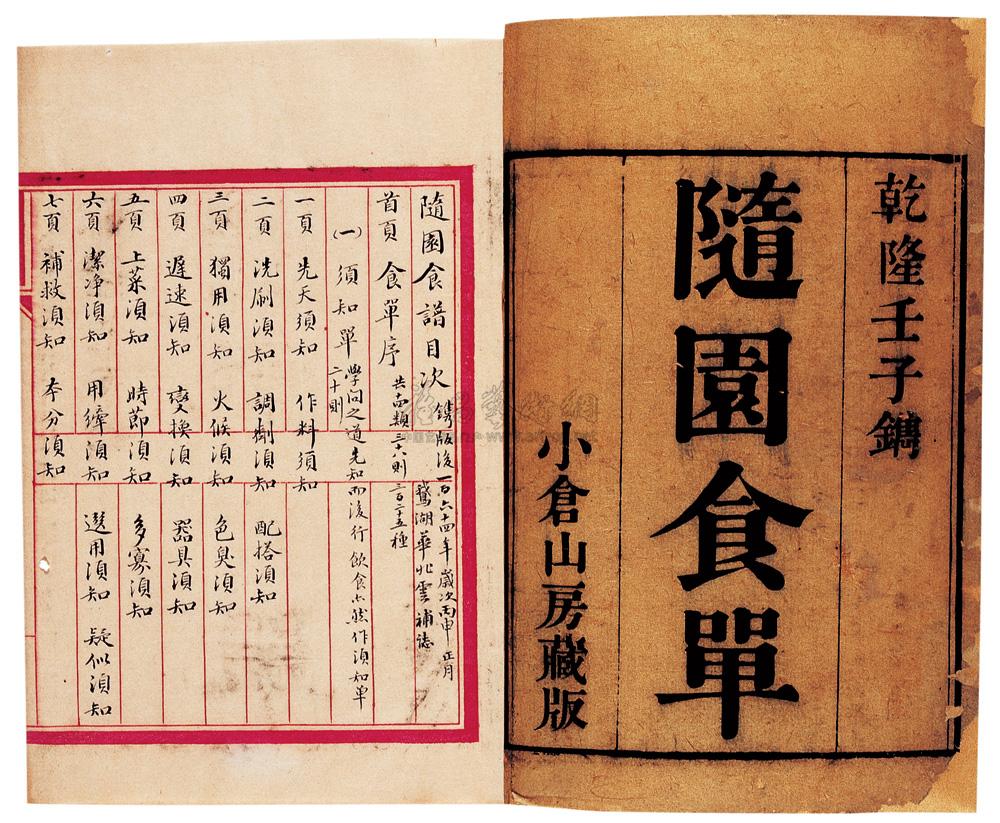 乾隆壬子鐫
隨園食單
小倉山房藏版
隨園食譜目次 鐫版後一百六十四年歲次丙申正月
鵝湖華北雲補誌
首頁 食單序 共十四類三六八則三百二十五種
(一) 須知單 學問之道先知而後行飲食亦然作須知單
二十則
一頁 先天須知 作料須知
二頁 洗刷須知 調劑須知 配搭須知
三頁 獨用須知 火候須知 色臭須知
四頁 遲速須知 變換須知 器具須知
五頁 上菜須知 時節須知 多寡須知
六頁 潔净須知 用縴須知 選用須知 疑似須知
七頁 補救須知 本分須知